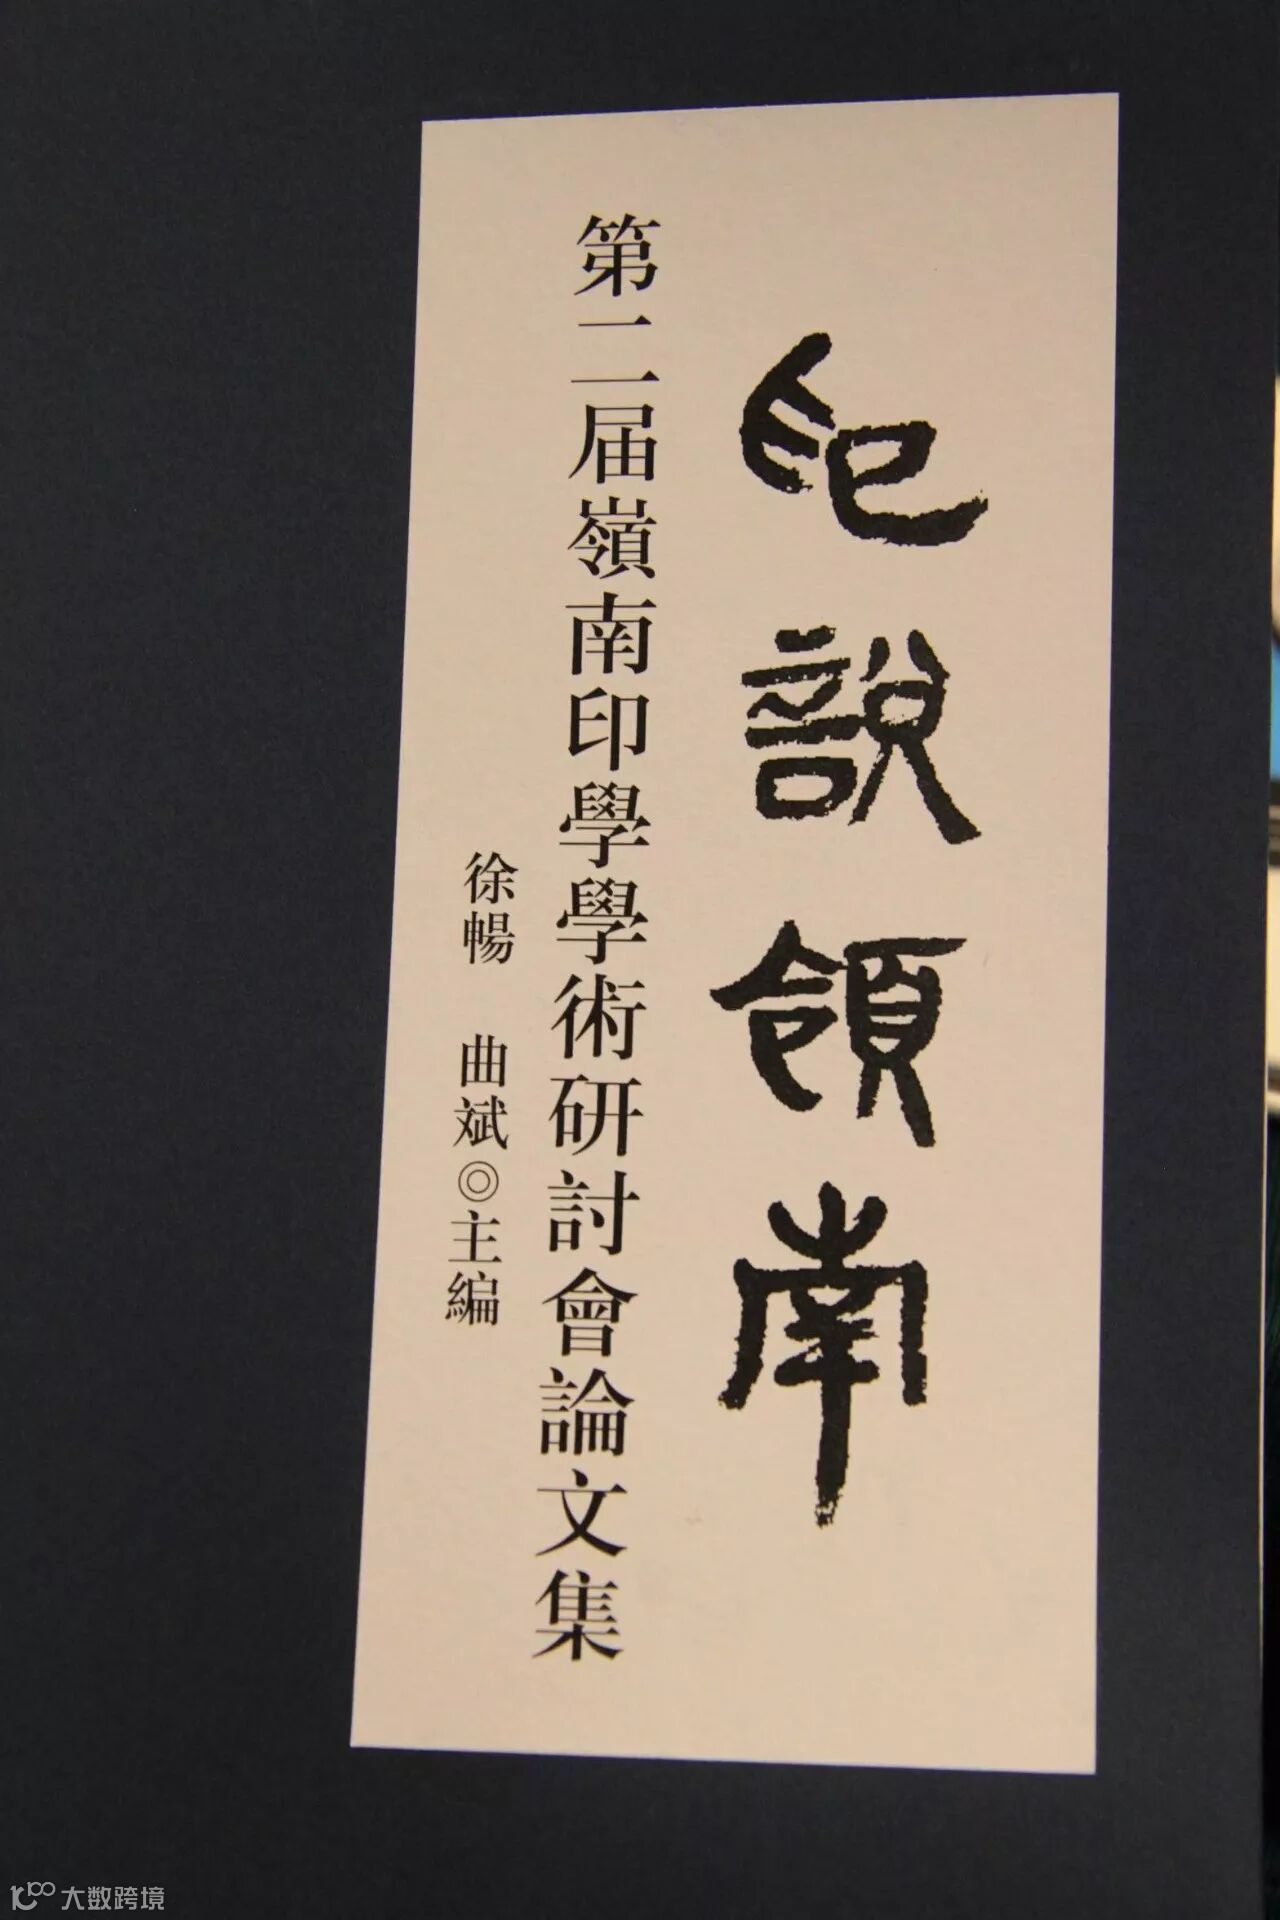 印說領南
第二届嶺南印學學術研討會論文集
徐暢 曲斌◎主編
大数跨境